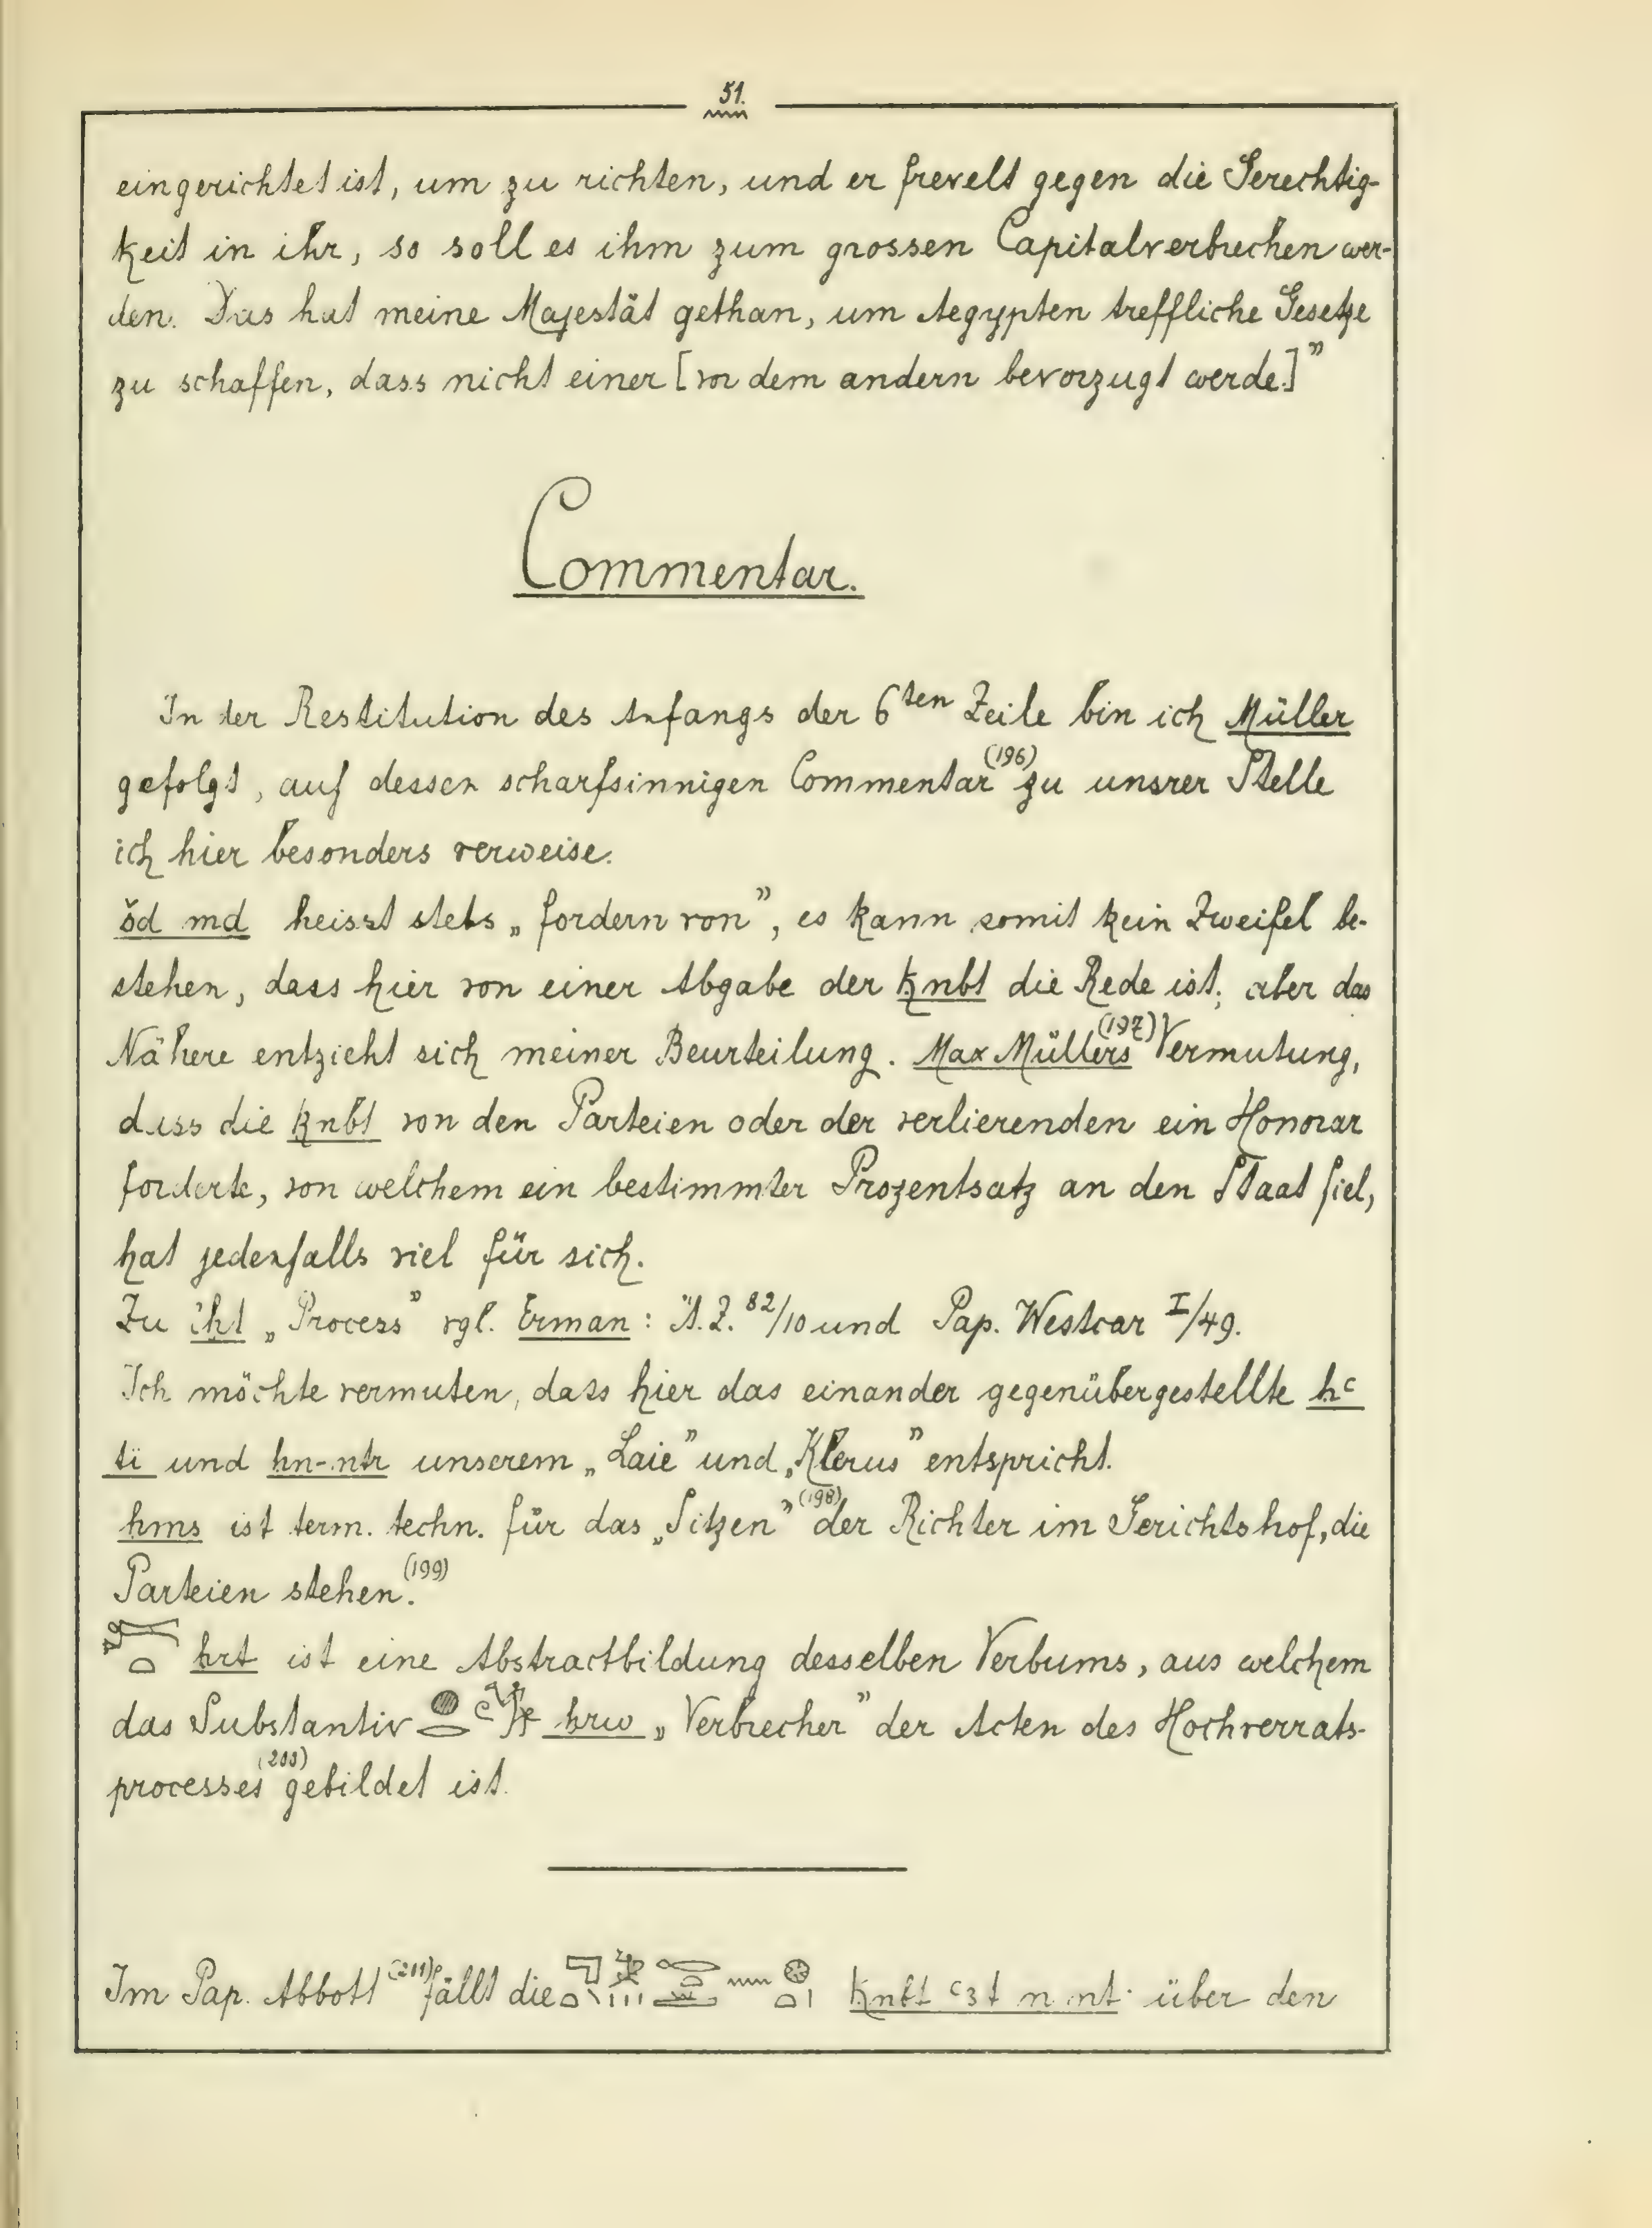 51.
eingerichtet ist, um zu richten, und er frevelt gegen die Gerechtig-
keit in ihr, so soll es ihm zum grossen Capitalverbrechen wer-
den. Das hat meine Majestät gethan, um Aegypten treffliche Gesetze
zu schaffen, dass nicht einer [vor dem andern bevorzugt werde.]”
Commentar.
In der Restitution des Anfangs der 6ten Zeile bin ich Müller
gefolgt, auf dessen scharfsinnigen Commentar (196) zu unsrer Stelle
ich hier besonders verweise.
šd md heisst stets „fordern von”, es kann somit kein Zweifel be-
stehen, dass hier von einer Abgabe der knbt die Rede ist; aber das
Nähere entzieht sich meiner Beurteilung. Max Müllers (197) Vermutung,
dass die knbt von den Parteien oder der verlierenden ein Honorar
forderte, von welchem ein bestimmter Prozentsatz an den Staat fiel,
hat jedenfalls viel für sich.
Zu iht „Process” vgl. Erman: Ä.Z. 82/10 und Pap. Westcar I/49.
Ich möchte vermuten, dass hier das einander gegenübergestellte hc
ti und hn-ntr unserem „Laie” und „Klerus” entspricht.
hms ist term. techn. für das „Sitzen” (198) der Richter im Gerichtshof, die
Parteien stehen. (199)
hrt ist eine Abstractbildung desselben Verbums, aus welchem
das Substantiv hrw „Verbrecher” der Acten des Hochverrats-
processes (200) gebildet ist.
Im Pap. Abbott fällt die knbt c3t n nt über den